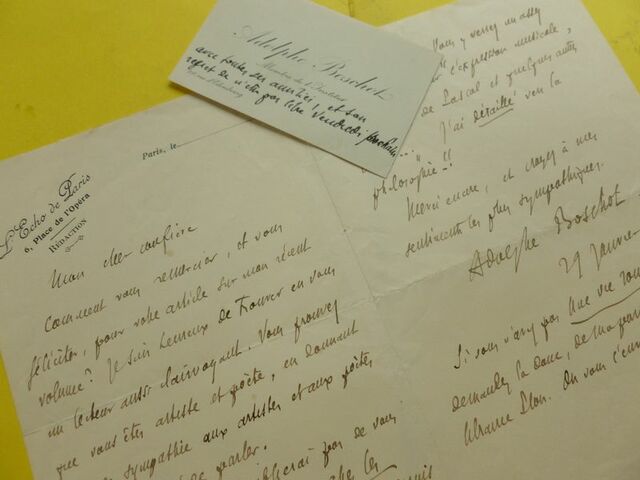 Adolphe Boschot
Membre de l'Institut
avec toutes ses amitiés, et son
regret de n'être pas libre vendredi prochain
Paris, le
L'Echo de Paris
6, Place de l'Opéra
RÉDACTION
Mon cher confrère
Comment vous remercier, et vous
féliciter, pour votre article sur mon récent
volume? Je suis heureux de trouver en vous
un lecteur aussi clairvoyant. Vous prouvez
que vous êtes artiste et poète, en donnant
sympathie aux artistes et aux poètes
de parler.
pas de vous
les
Vous y verrez un assez
l'expression musicale,
de Pascal et quelques autres
J'ai déraillé vers la
philosophie!!
Merci encore, et croyez à mes
sentiments les plus sympathiques.
Adolphe Boschot
29 Janvier
Si vous n'avez pas Une vie rom
demandez la donc, de ma part
librairie Plon. On vous l'env